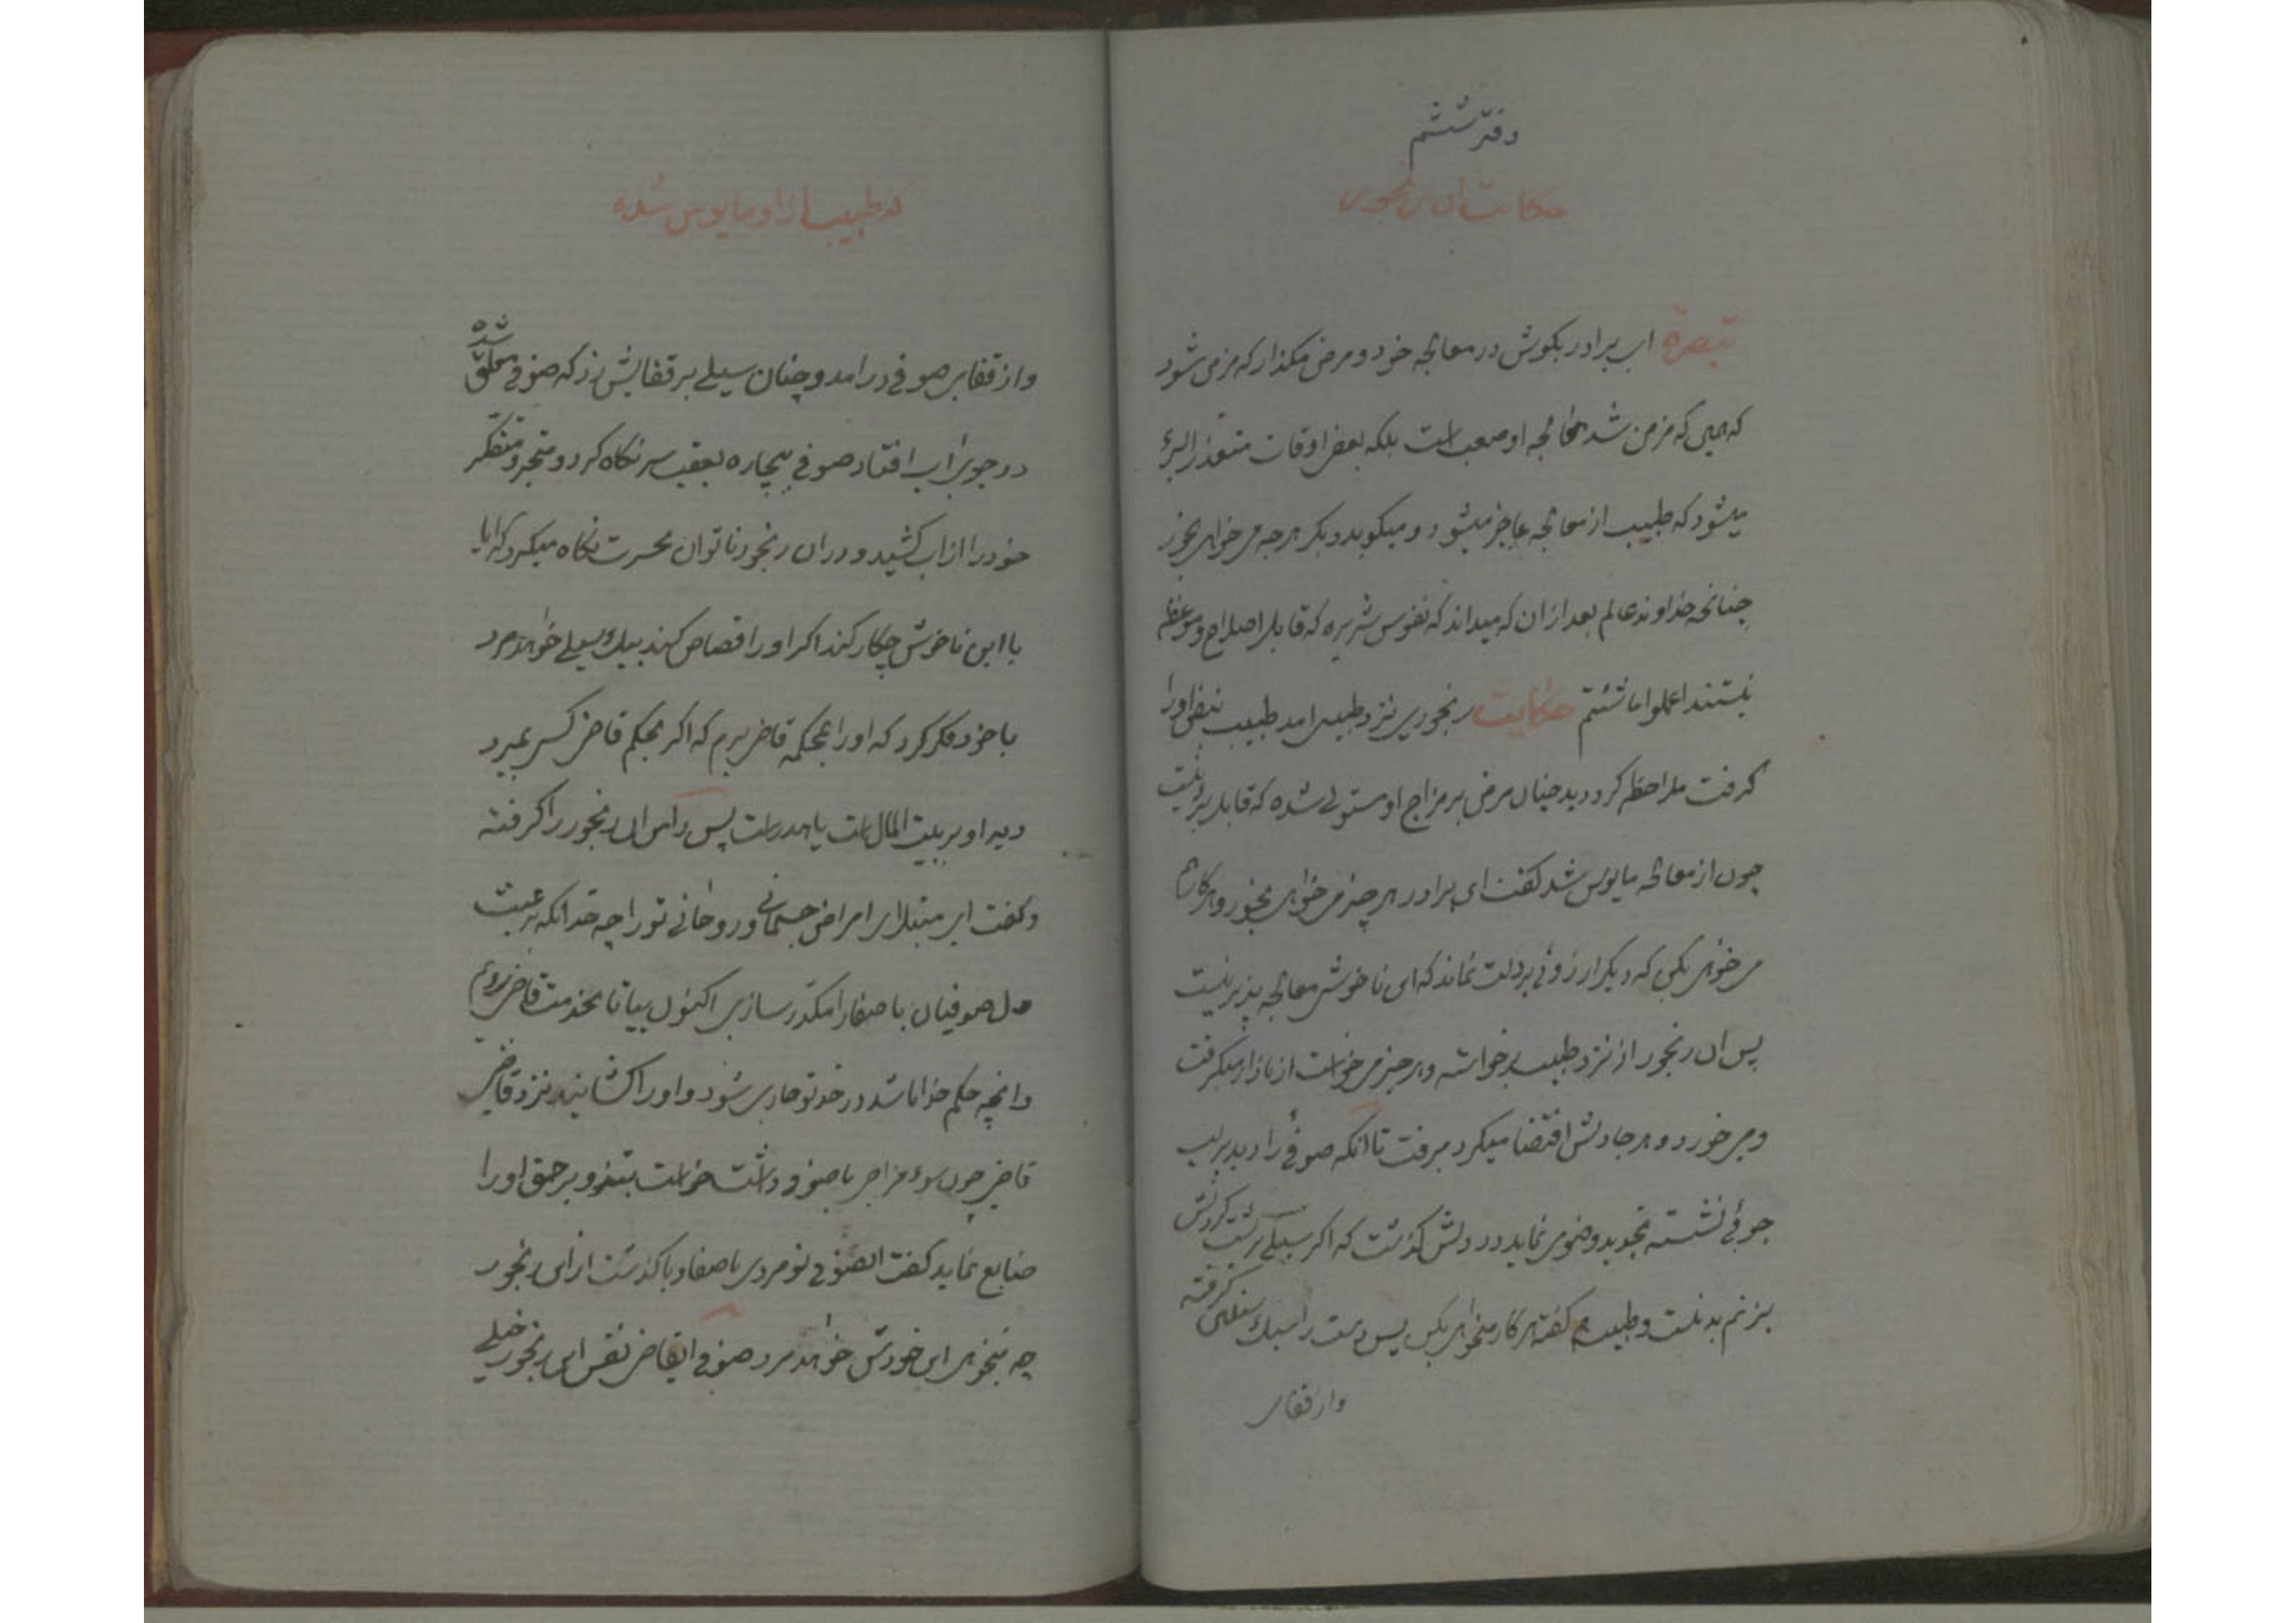 دفتر ششم
حکایت آن رنجوری
تبصرة ای برادر بکوش در معالجه خود و مرض مکذار که مزمن شود
که همین که مزمن شد معالجه او صعب است بلکه بعض اوقات متعذر البرء
میشود که طبیب از معالجه عاجز میشود و میکوید دیکر هرچه می خواهی بخور
چنانچه خداوند عالم بعد از آن که میداند که نفوس شریره که قابل اصلاح و موعظه
نیستند اعملوا ما شئتم حکایت رنجوری نزد طبیب امد طبیب نبض او را
کرفت ملاحظه کرد دید چنان مرض بر مزاج او مستولی شده که قابل برء نیست
چون از معالجه مایوس شد کفت ای برادر هر چیز می خواهی بخور و هر کار هم
می خواهی بکن که دیکر ارزوئی بردلت نماند که این ناخوشی معالجه پذیر نیست
پس ان رنجور از نزد طبیب برخواسته و هر چیز می خواست از بازار میکرفت
و می خورد و هر جا دلش اقتضا میکرد میرفت تا انکه صوفی را دید بر لب
جوئی نشسته تجدید وضو می نماید در دلش کذشت که اکر سیلی بر پشت کردنش
بزنم بد نیست و طبیب هم کفته هر کار میخواهی بکن پس دست را سبک سنکین کرفته
واز قفای
که طبیب از او مایوس شده
و از قفای صوفی در امد و چنان سیلی بر قفایش زد که صوفی معلق شده
در جوی اب افتاد صوفی بیچاره بعقب سر نکاه کرد و متحیر و متفکر
خود را از اب کشید و در ان رنجور ناتوان بحسرت نکاه میکرد که ایا
با این ناخوش چکار کند اکر او را قصاص کند بیک سیلی خواهد مرد
با خود فکر کرد که او را بمحکمه قاضی برم که اکر بحکم قاضی کسی بمیرد
دیه او بر بیت المال است یا هدر است پس دامن ان رنجور را کرفته
و کفت ای مبتلای امراض جسمانی و روحانی تو را چه حد انکه بی عبث
دل صوفیان با صفا را مکدر سازی اکنون بیا تا بخدمت قاضی رویم
و انچه حکم خدا باشد در حد تو جاری شود و او را کشانید نزد قاضی
قاضی چون سوء مزاجی با صوفی داشت خواست بتزویر حق او را
ضایع نماید کفت ایصوفی تو مردی با صفا و با کذشت از این رنجور
چه میخواهی این خودش خواهد مرد صوفی ایقاضی نفس این رنجور خیلی